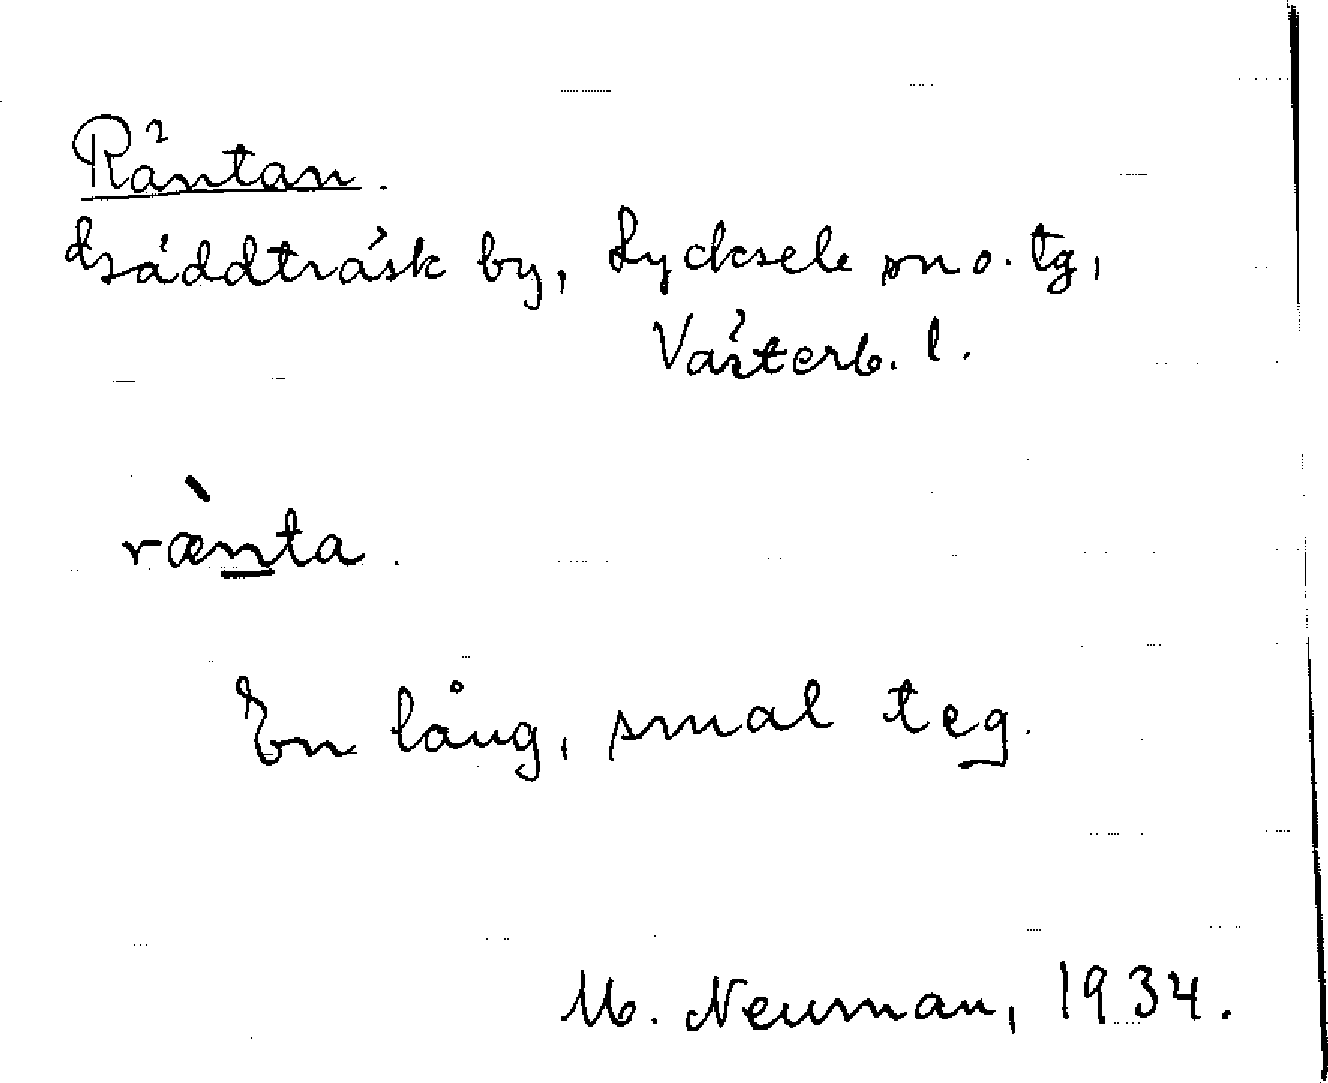 Räntan.
Bräddträsk by, Lycksele sn o. tg,
Västerb. l.
rænta.
En lång, smal teg.
M. Neuman, 1934.